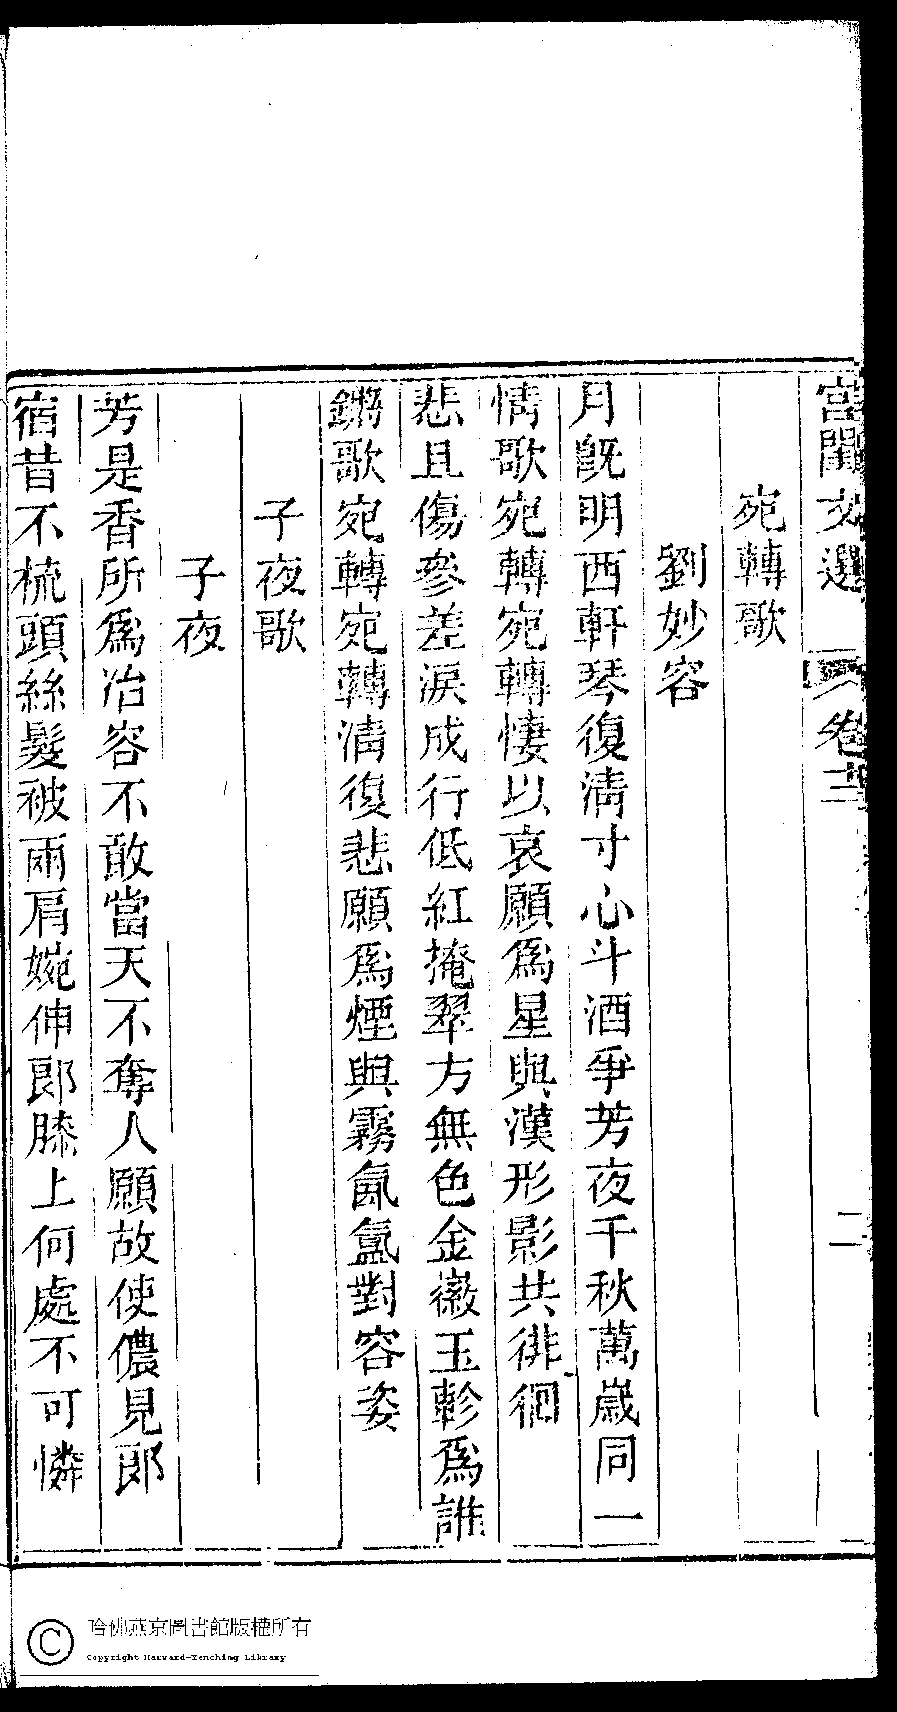 宮閨文選 卷十三 二
宛轉歌
劉妙容
月旣明西軒琴復淸寸心斗酒爭芳夜千秋萬歲同一
情歌宛轉宛轉悽以哀願爲星與漢形影共徘徊
悲且傷參差淚成行低紅掩翠方無色金徽玉軫爲誰
鏘歌宛轉宛轉淸復悲願爲煙與霧氤氳對容姿
子夜歌
子夜
芳是香所爲冶容不敢當天不奪人願故使儂見郞
宿昔不梳頭絲髮被兩肩婉伸郞膝上何處不可憐
哈佛燕京圖書館版權所有
Copyright Harvard-Yenching Library